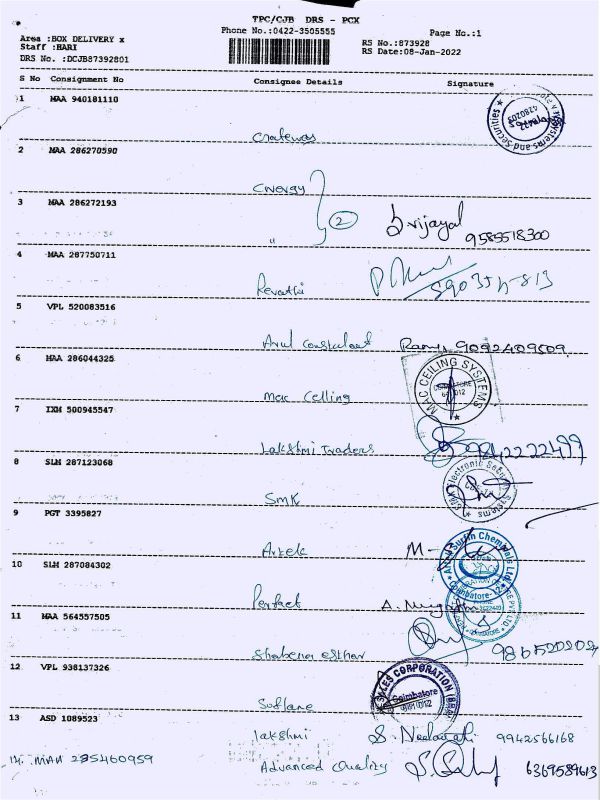 TPC/CJB DRS - PCX
Phone No.:0422-3505555
Page No.:1
Area :BOX DELIVERY x
Staff :HARI
DRS No. :DCJB87392801
RS No.:873928
RS Date:08-Jan-2022
S No Consignment No Consignee Details Signature
1 MAA 940181110
Gateway
2 MAA 286270590
Cnergy
3 MAA 286272193
2
"
D. vijayal
9585518300
4 MAA 287750711
Revathi
5 VPL 520083516
Arul Consultant Ramy 9092409509
6 MAA 286044325
MAC CEILING SYSTEMS
COIMBATORE
641 012
Mac Ceiling
7 IXM 500945547
Lakshmi Traders 9842222499
8 SLM 287123068
SMK
9 PGT 3395827
Artek
10 SLM 287084302
Perfect
11 MAA 564557505
Shabena esthar
12 VPL 938137326
CORPORATION
Coimbatore
641 012
13 ASD 1089523
Lakshmi S. Neelavathi 9942566168
14. MAA 285460959
Advanced Quality 6369589613